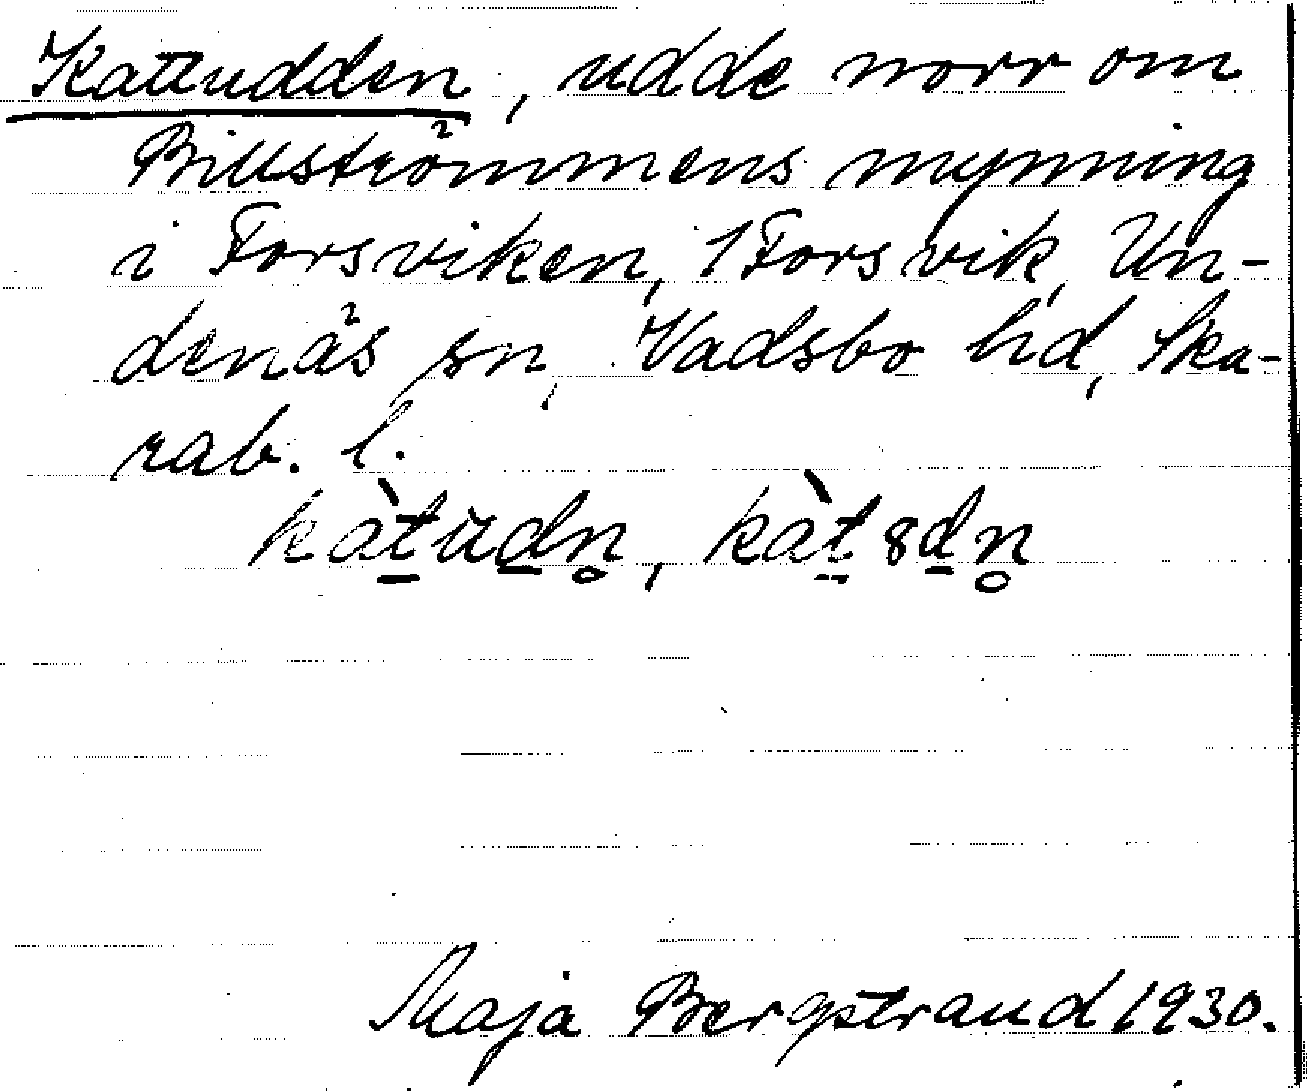 Kattudden, udde norr om
Billströmmens mynning
i Forsviken, 1 Forsvik, Un-
denäs sn, Vadsbo hd, Ska-
rab. l.
kàt̲ud̲n̥, kàt̲8d̲n̥
Maja Bergstrand 1930.